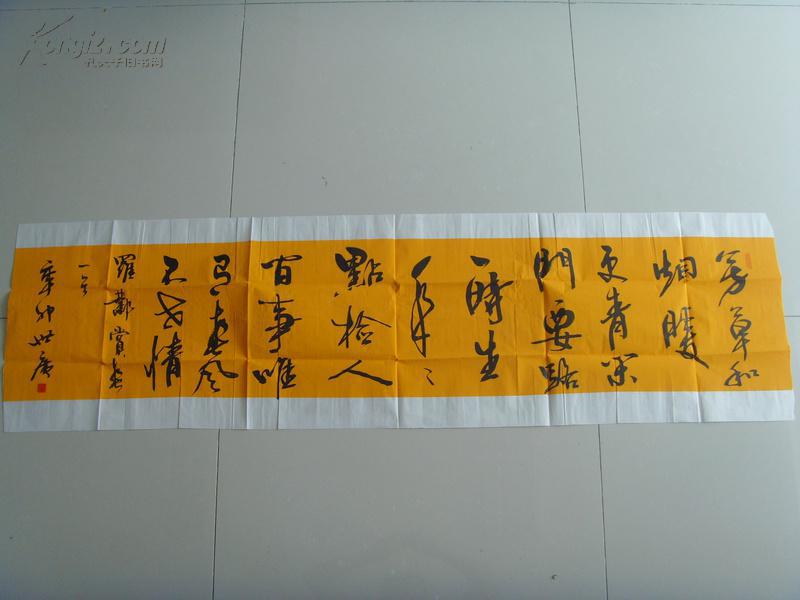 Kongfz.com
孔夫子旧书网
芳草和
烟暖
更青閑
門要路
一時生
年々
點检人
间事唯
有春风
不世情
羅鄴賞春
一首
辛卯世广